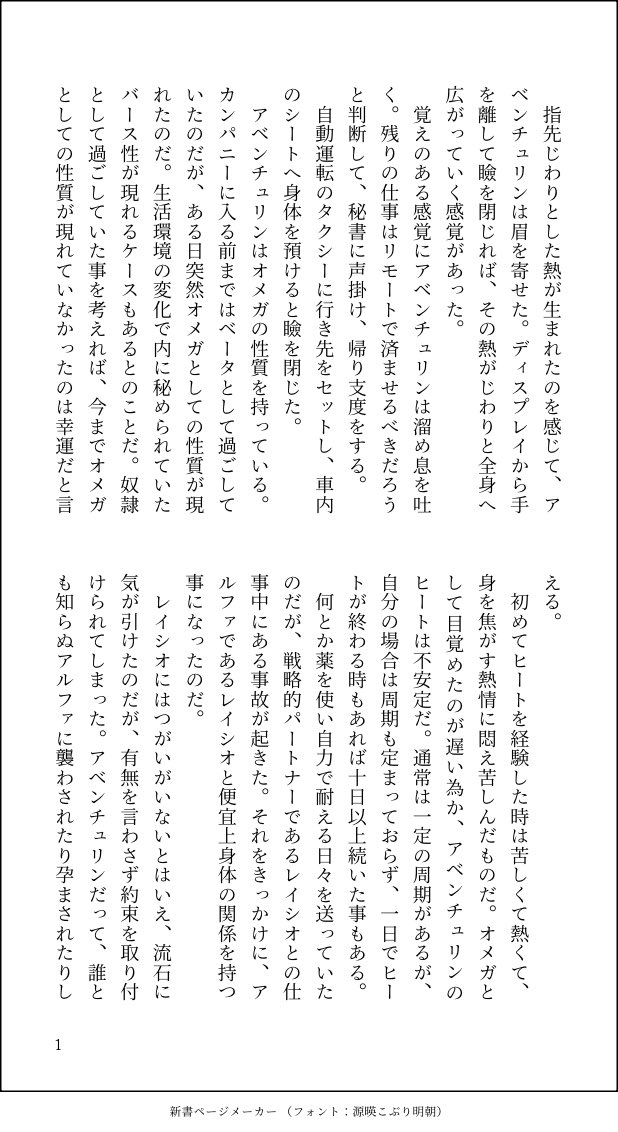 指先じわりとした熱が生まれたのを感じて、ア
ベンチュリンは眉を寄せた。ディスプレイから手
を離して瞼を閉じれば、その熱がじわりと全身へ
広がっていく感覚があった。
　覚えのある感覚にアベンチュリンは溜め息を吐
く。残りの仕事はリモートで済ませるべきだろう
と判断して、秘書に声掛け、帰り支度をする。
　自動運転のタクシーに行き先をセットし、車内
のシートへ身体を預けると瞼を閉じた。
　アベンチュリンはオメガの性質を持っている。
カンパニーに入る前まではベータとして過ごして
いたのだが、ある日突然オメガとしての性質が現
れたのだ。生活環境の変化で内に秘められていた
バース性が現れるケースもあるとのことだ。奴隷
として過ごしていた事を考えれば、今までオメガ
としての性質が現れていなかったのは幸運だと言
える。
　初めてヒートを経験した時は苦しくて熱くて、
身を焦がす熱情に悶え苦しんだものだ。オメガと
して目覚めたのが遅い為か、アベンチュリンの
ヒートは不安定だ。通常は一定の周期があるが、
自分の場合は周期も定まっておらず、一日でヒー
トが終わる時もあれば十日以上続いた事もある。
　何とか薬を使い自力で耐える日々を送っていた
のだが、戦略的パートナーであるレイシオとの仕
事中にある事故が起きた。それをきっかけに、ア
ルファであるレイシオと便宜上身体の関係を持つ
事になったのだ。
　レイシオにはつがいがいないとはいえ、流石に
気が引けたのだが、有無を言わさず約束を取り付
けられてしまった。アベンチュリンだって、誰と
も知らぬアルファに襲わされたり孕まされたりし
1
新書ページメーカー（フォント：源暎こぶり明朝）